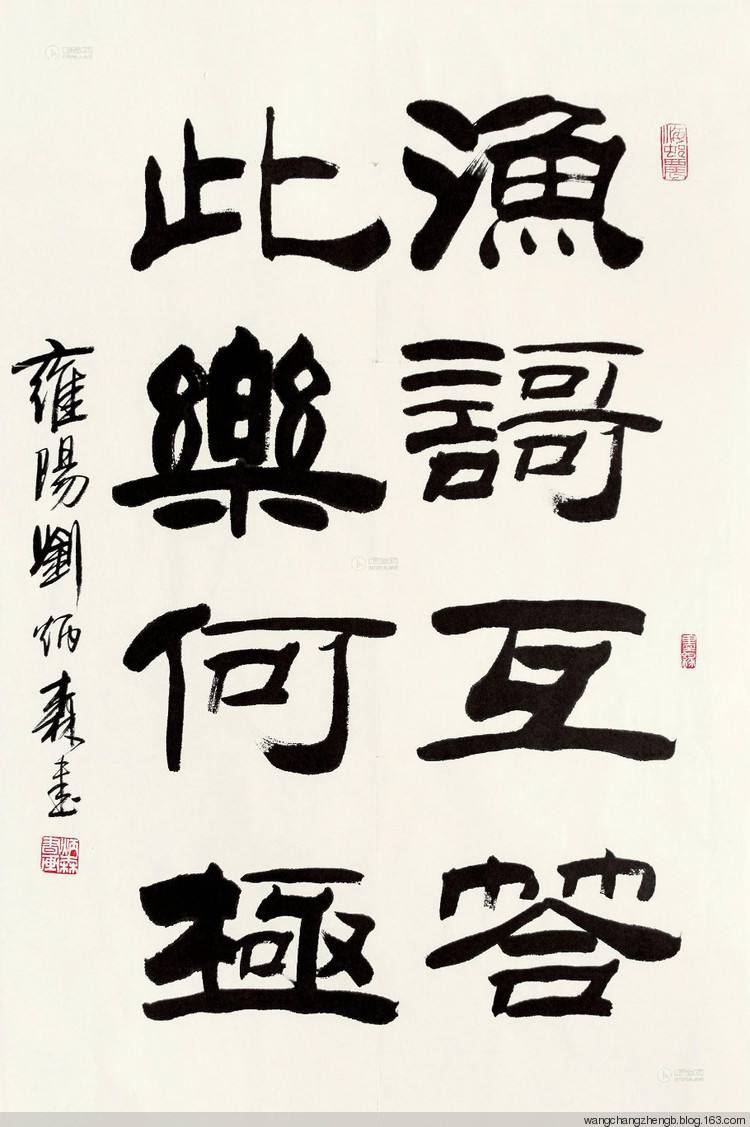 漁謌互荅
此樂何極
雍陽劉炳森書
炳森書画
wangchangzhengb.blog.163.com